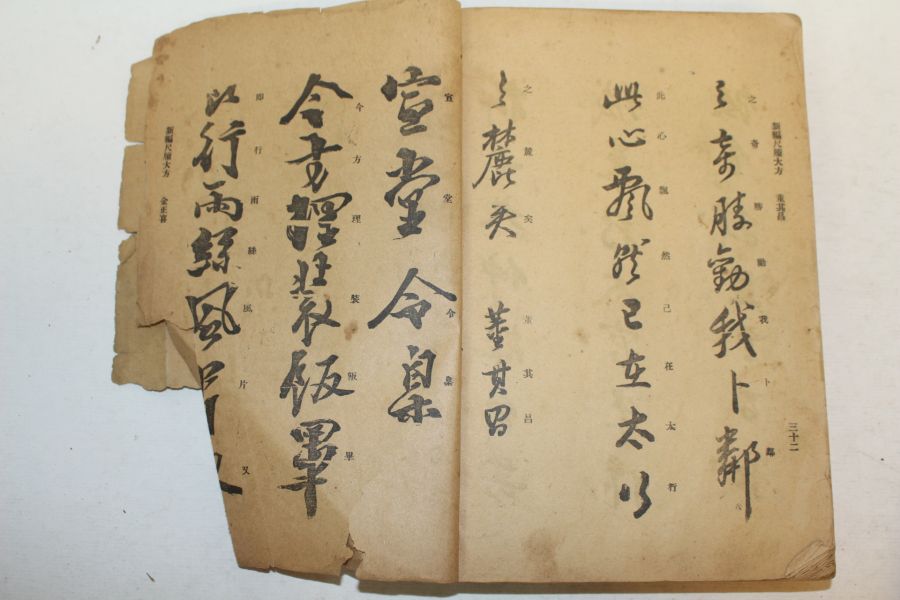 新編尺牘大方 董其昌
三十二
之奇勝勸我卜鄰
之奇勝勸我卜鄰
此心飄然已在太行
此心飄然已在太行
之麓矣 董其昌
之麓矣 董其昌
宣堂令
宣堂令
今方理裝飯畢
今方理裝飯畢
即行雨絲風片又
以行雨絲風片又
新編尺牘大方 金正喜